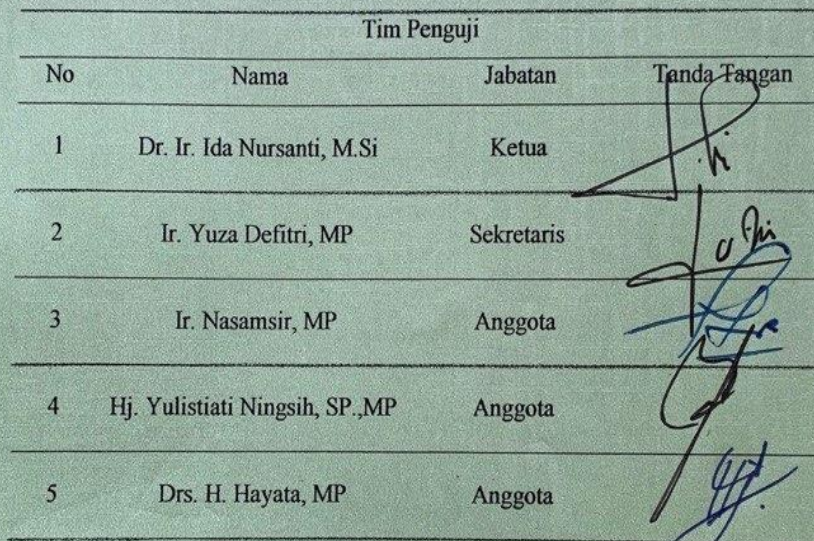 Tim Penguji
No Nama Jabatan Tanda Tangan
1 Dr. Ir. Ida Nursanti, M.Si Ketua
2 Ir. Yuza Defitri, MP Sekretaris
3 Ir. Nasamsir, MP Anggota
4 Hj. Yulistiati Ningsih, SP.,MP Anggota
5 Drs. H. Hayata, MP Anggota